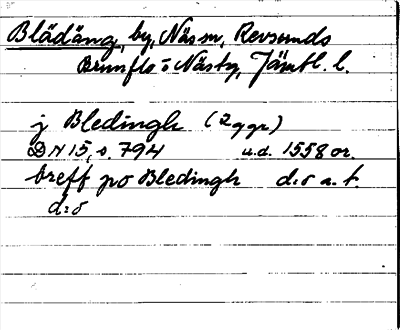 Blädäng, by, Näs sn, Revsunds
Brunflo o Näs tg, Jämtl. l.
j Bledingh (2 ggr)
DN 15, s. 794 u.d. 1558 or.
breff po Bledingh d:o a. t.
d:o